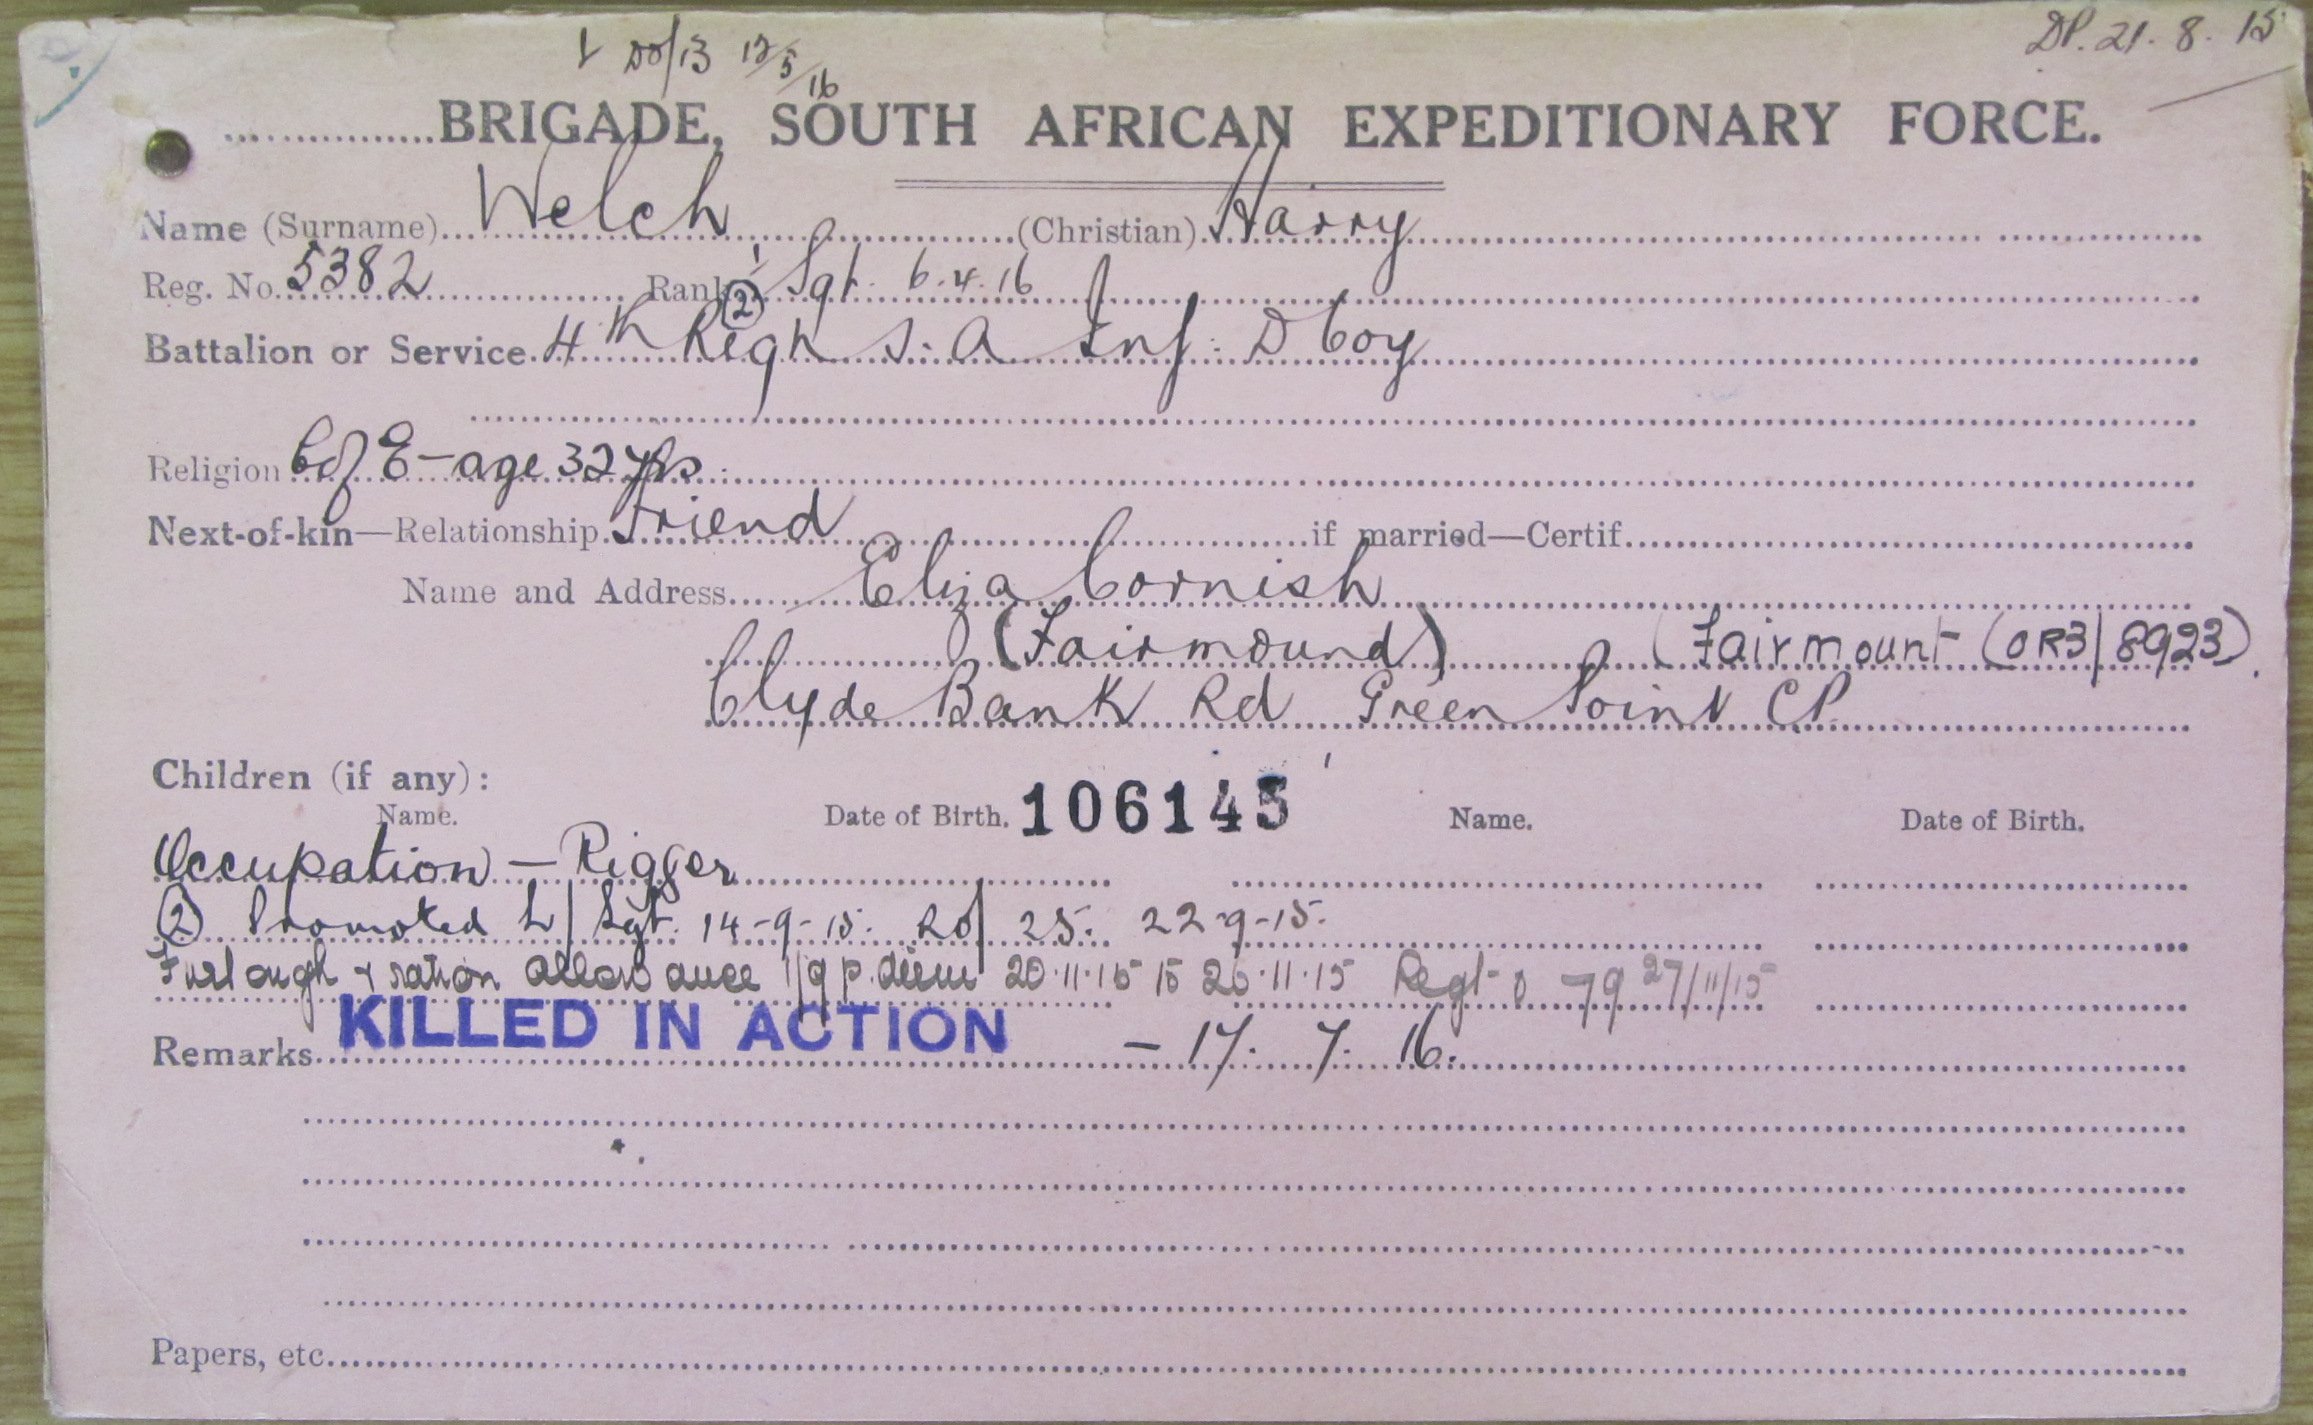 DO/13 12/5/16
DP. 21. 8. 15
BRIGADE, SOUTH AFRICAN EXPEDITIONARY FORCE.
Name (Surname) Welch (Christian) Harry
Reg. No. 5382 Rank (2) Sgt. 6.4.16
Battalion or Service 4th Regt S.A Inf: D Coy
Religion C of E - age 32 yrs
Next-of-kin—Relationship Friend if married—Certif.
Name and Address Eliza Cornish
(Fairmound) (Fairmount (OR3/8923)
Clyde Bank Rd Green Point CP.
Children (if any):
Name. Date of Birth. 106145 Name. Date of Birth.
Occupation — Rigger
(2) Promoted L/Sgt. 14-9-15. RO/ 25. 22-9-15.
Furlough & ration allowance 1/9 p. diem 20.11.15 to 26.11.15 Regt O 79 27/11/15
Remarks KILLED IN ACTION — 17. 7. 16.
Papers, etc.